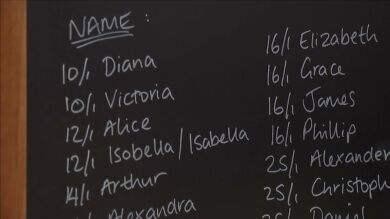 NAME:
10/1 Diana
10/1 Victoria
12/1 Alice
12/1 Isobella/Isabella
14/1 Arthur
Alexandra
16/1 Elizabeth
16/1 Grace
16/1 James
16/1 Phillip
25/1 Alexander
25/1 Christoph
Daniel